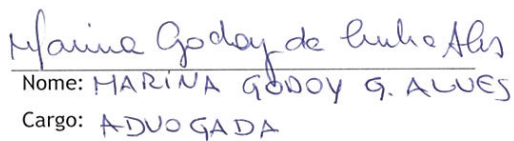 Marina Godoy da Cunha Alves
Nome: MARINA GODOY G. ALVES
Cargo: ADVOGADA